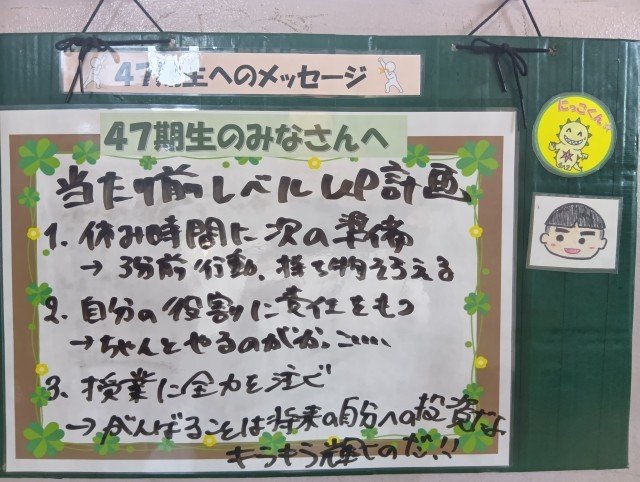 47期生へのメッセージ
47期生のみなさんへ
にっこくん☆
当たり前レベルUP計画
1. 休み時間に次の準備
→ 3分前行動、持ち物そろえる
2. 自分の役割に責任をもつ
→ちゃんとやるのがかっこいい
3. 授業に全力を注ぐ
→ がんばることは将来の自分への投資だよ
キラキラ輝くのだ!!